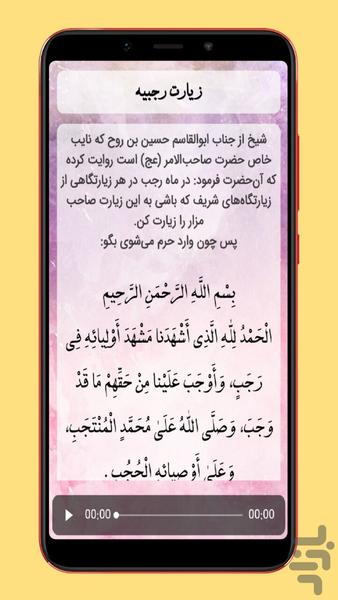 زیارت رجبیه
شیخ از جناب ابوالقاسم حسین بن روح که نایب
خاص حضرت صاحب‌الامر (عج) است روایت کرده
که آن‌حضرت فرمود: در ماه رجب در هر زیارتگاهی از
زیارتگاه‌های شریف که باشی به این زیارت صاحب
مزار را زیارت کن.
پس چون وارد حرم می‌شوی بگو:
بِسْمِ اللَّهِ الرَّحْمَنِ الرَّحِيمِ
الْحَمْدُ لِلَّهِ الَّذِی أَشْهَدَنا مَشْهَدَ أَوْلِیائِهِ فِی
رَجَبٍ، وَأَوْجَبَ عَلَیْنا مِنْ حَقِّهِمْ مَا قَدْ
وَجَبَ، وَصَلَّى اللّٰهُ عَلَىٰ مُحَمَّدٍ الْمُنْتَجَبِ،
وَعَلَىٰ أَوْصِیائِهِ الْحُجُبِ .
00:00 00:00
بازار